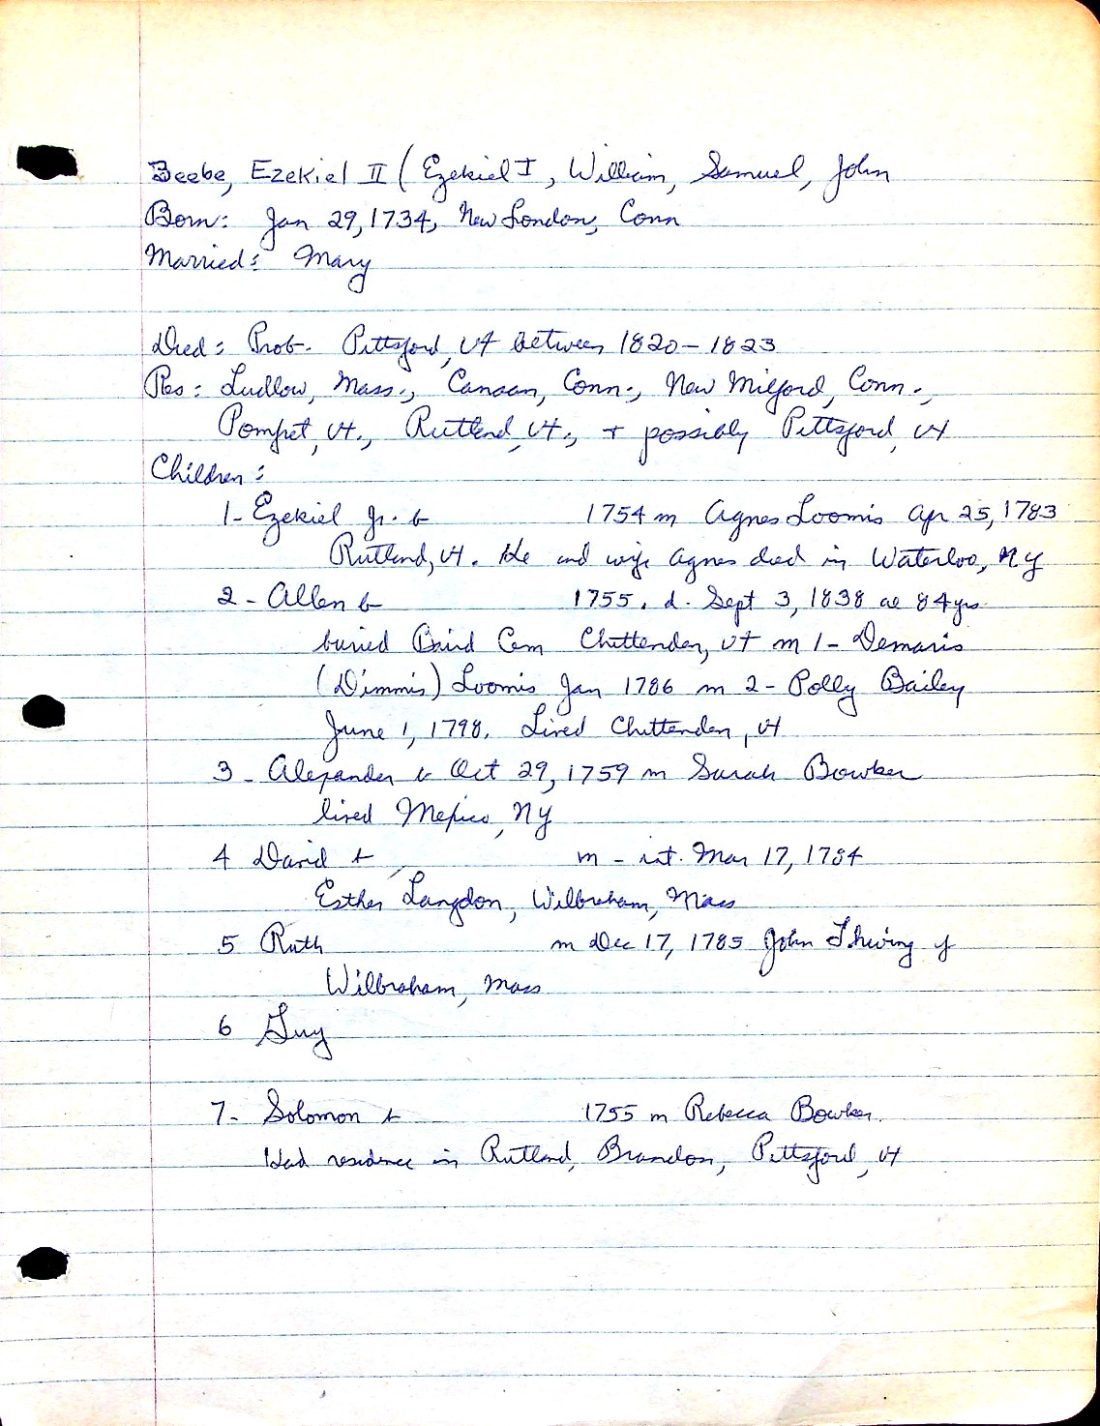 Beebe, Ezekiel II (Ezekiel I, William, Samuel, John
Born: Jan 29, 1734, New London, Conn
Married: Mary
Died: Prob. Pittsford, Vt between 1820-1823
Res: Ludlow, Mass., Canaan, Conn., New Milford, Conn.,
Pomfret, Vt., Rutland, Vt., + possibly Pittsford, Vt
Children:
1- Ezekiel Jr. b 1754 m Agnes Loomis Apr 25, 1783
Rutland, Vt. He and wife Agnes died in Waterloo, NY
2- Allen b 1755. d. Sept 3, 1838 ae 84 yrs
buried Baird Cem Chittenden, Vt m 1- Demaris
(Dimmis) Loomis Jan 1786 m 2- Polly Bailey
June 1, 1798. Lived Chittenden, Vt
3- Alexander b Oct 29, 1759 m Sarah Bowker
lived Mexico, NY
4 David b m - int. Mar 17, 1784
Esther Langdon, Wilbraham, Mass
5 Ruth m Dec 17, 1785 John Thwing of
Wilbraham, Mass
6 Guy
7- Solomon b 1755 m Rebecca Bowker.
Had residence in Rutland, Brandon, Pittsford, Vt